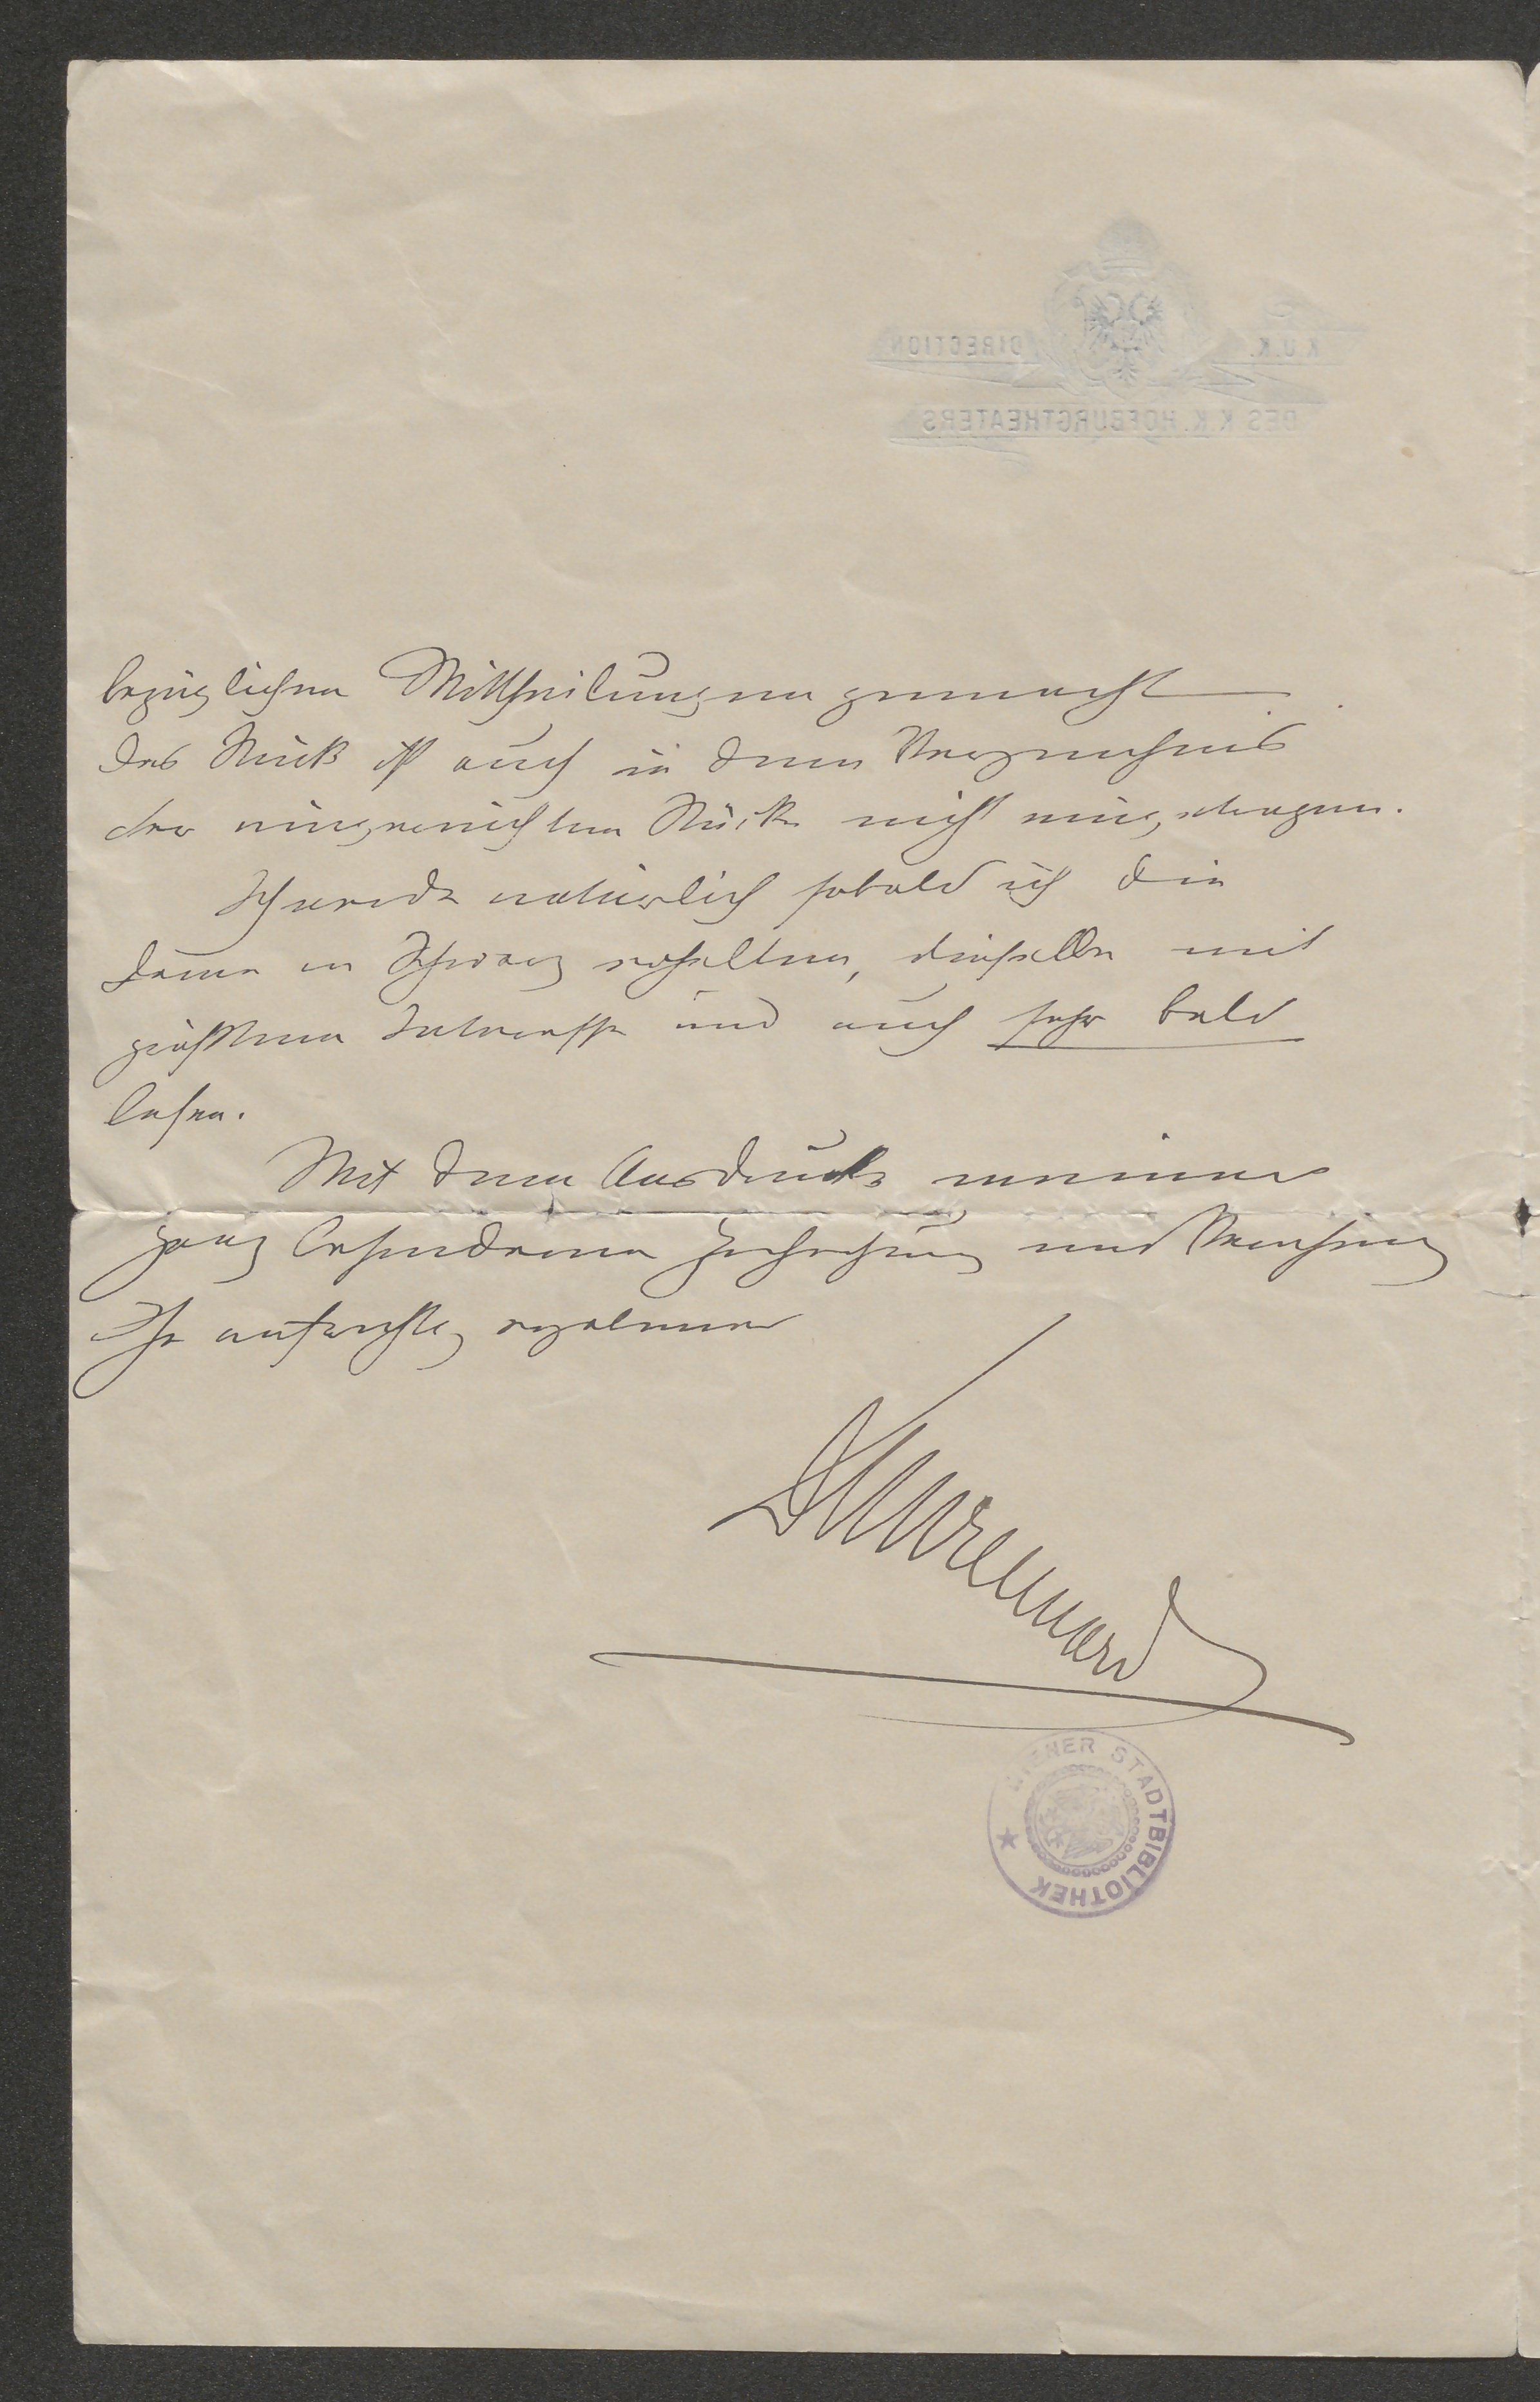 K.U.K. DIRECTION
DES K.K. HOFBURGTHEATERS
bezüglichen Mittheilungen gemacht.
Das Stück ist auch in dem Verzeichnis
der eingereichten Stücke nicht eingetragen.
Ich werde natürlich sobald ich die
erhalten, dieselbe mit
größtem Interesse und auch sehr bald
lesen.
Mit dem Ausdrucke meiner
ganz besonderen Hochachtung und Verehrung
Ihr aufrichtig ergebener
WIENER STADTBIBLIOTHEK